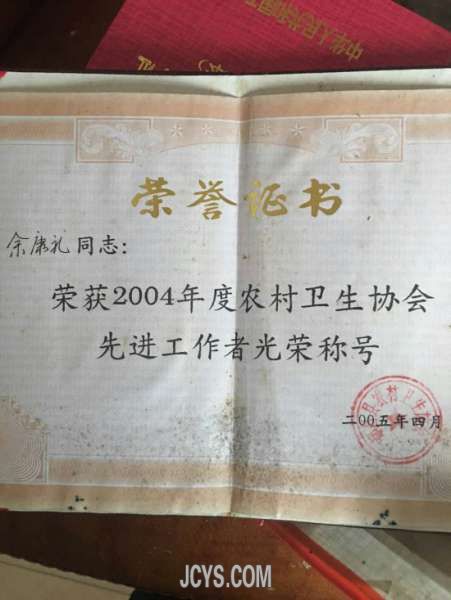 中华人民共和国
荣誉证书
余康礼同志:
荣获2004年度农村卫生协会
先进工作者光荣称号
农村卫生
二00五年四月
JCYS.COM